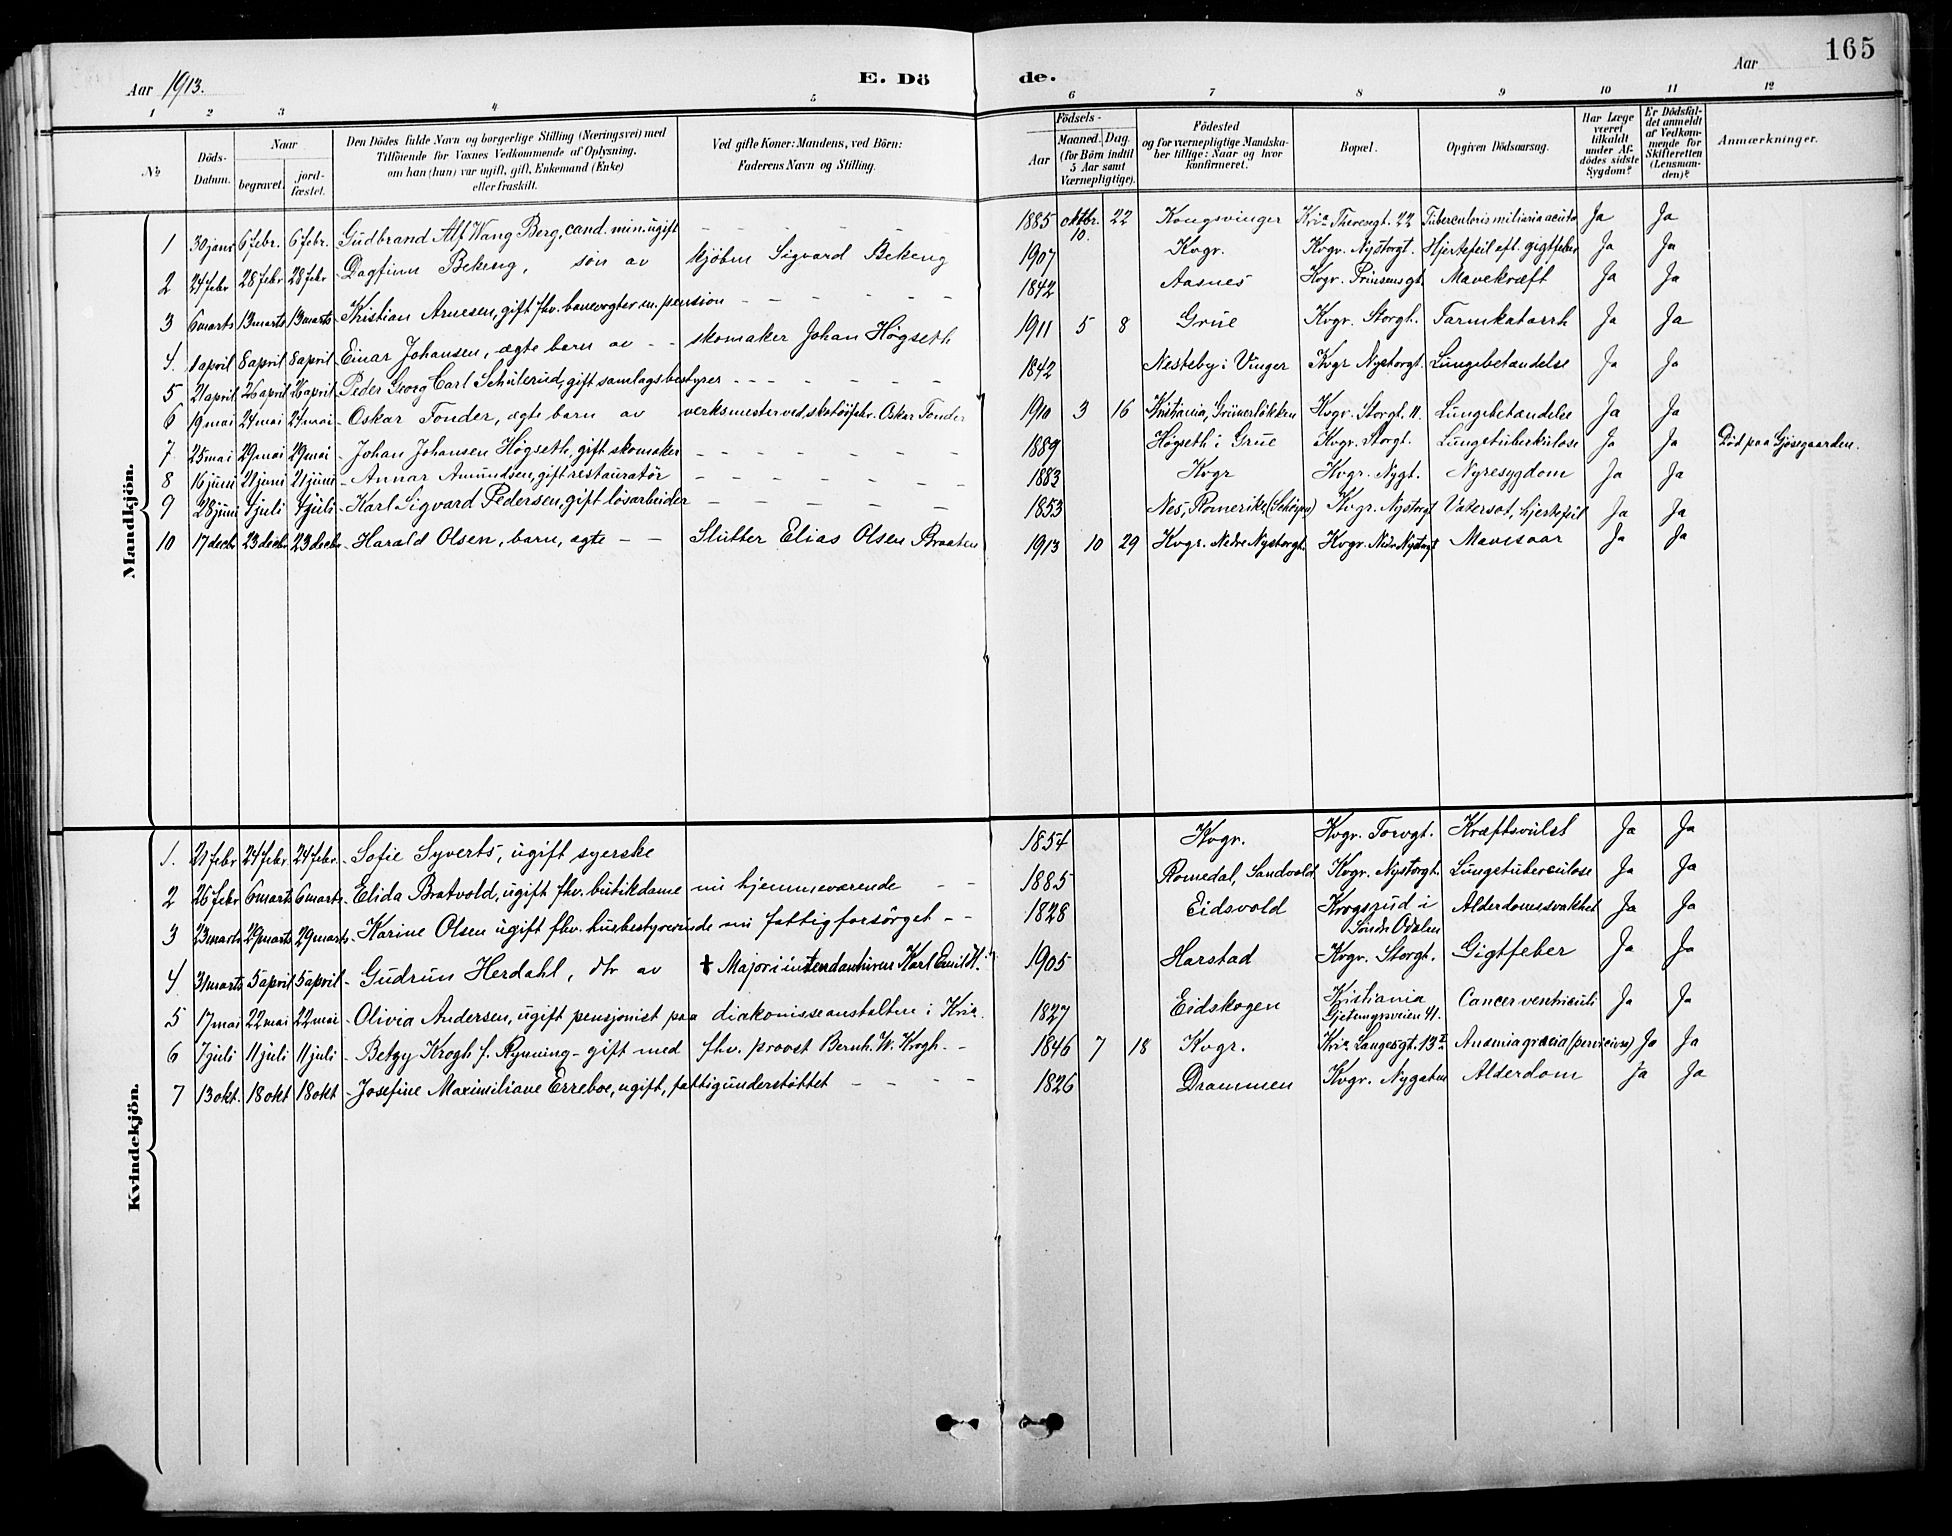 165
Aar 1913.
E. Dö de.
Aar
1 2 3 4 5 6 7 8 9 10 11 12
No
Döds-Datum.
Naar
begravet. jordfæstet.
Den Dödes fulde Navn og borgerlige Stilling (Næringsvei) med
Tilföiende for Voxnes Vedkommende af Oplysning,
om han (hun) var ugift, gift, Enkemand (Enke)
eller fraskilt.
Ved gifte Koner: Mandens, ved Börn:
Faderens Navn og Stilling.
Födsels-
Aar
Maaned. Dag.
(for Börn indtil
5 Aar samt
Værnepligtige).
Födested
og for værnepligtige Mandskaber tillige: Naar og hvor
konfirmeret.
Bopæl.
Opgiven Dödsaarsag.
Har Læge
været
tilkaldt
under Afdödes sidste
Sygdom?
Er Dödsfaldet anmeldt
af Vedkommende for
Skifteretten
(Lensmanden)?
Anmærkninger.
Mandkjön.
1 30 janr 6 febr. 6 febr. Gudbrand Alf Wang Berg, cand. min. ugift - - - - - 1885 oktbr. 10. 22 Kongsvinger Kria Theresgt. 22 Tuberculosis miliaria acuta Ja Ja
2 24 febr 28 febr 28 febr - Dagfinn Bekeng, sön av kjöbm Sigvard Bekeng 1907 Kvgr. Kvgr. Nystorgt. Hjertefeil eft. gigtfeber Ja Ja
3 6 marts 13 marts 13 marts - Kristian Arnesen, gift fhv. banevogter m. pension - - - - - 1842 Aasnes Kvgr. Prinsensgt. Mavekræft Ja Ja
4. 1 april 8 april 8 april - Einar Johansen, ægte barn av - - skomaker Johan Högseth 1911 5 8 Grue Kvgr. Storgt. Tarmkatarrh Ja Ja
5 21 april 26 april 26 april - Peder Georg Carl Schulerud, gift samlagsbestyrer - - - - - 1842 Nesteby i Vinger Kvgr Nystorgt. Lungebetændelse Ja Ja
6 19 mai 24 mai 24 mai - Oskar Tonder, ægte barn av verksmester ved skotöifabr. Oskar Tonder 1910 3 16 Kristiania, Grünerlökken Kvgr. Storgt. 11. Lungebetændelse Ja Ja
7. 25 mai 29 mai 29 mai - Johan Johansen Högseth, gift skomaker - - - - - 1889 Högseth i Grue Kvgr. Storgt. Lungetuberkulose Ja Ja Död paa Gjösegaarden.
8 16 juni 21 juni 21 juni - Annar Amundsen, gift restauratör - - - - - 1883 Kvgr Kvgr. Nygt. Nyresygdom Ja Ja
9 28 juni 4 juli 4 juli - Karl Sigvard Pedersen, gift lösarbeider - - - - - 1853 Nes, Romerike Kvgr. Nystorgt Vatersot, hjertefeil Ja Ja
10 17 decbr 23 decbr 23 decbr - Harald Olsen, barn, ægte - - Slutter Elias Olsen Braaten 1913 10 29 Kvgr. Nedre Nystorgt. Kvgr. Nedre Nystorgt Mavesaar Ja Ja
Kvindekjön.
1. 21 febr 24 febr 24 febr. - Sofie Syverts, ugift syerske 1854 Kvgr. Kvgr. Torvgt. Kræftsvulst Ja Ja
2 26 febr 6 marts 6 marts - Elida Bratvold, ugift fhv. butikdame nu hjemmeværende - - 1885 Romedal, Sandvold Kvgr. Nystorgt. Lungetuberculose Ja Ja
3 23 marts 29 marts 29 marts - Karine Olsen ugift fhv. husbestyrerinde nu fattigforsörget - - 1828 Eidsvold i Söndre Odalen Alderdomssvakhet Ja Ja
4 31 marts 5 april 5 april - Gudrun Herdahl, dtr av † Major i intendanturen Karl Emil H. 1905 Harstad Kvgr. Storgt. Gigtfeber Ja Ja
5 17 mai 22 mai 22 mai - Olivia Andersen, ugift pensjonist paa diakonisseanstalten i Kria. 1827 Eidskogen Kristiania Gjetemyrsveien 41. Cancer ventriculi Ja Ja
6 7 juli 11 juli 11 juli - Betzy Krogh f. Rynning - gift med fhv. provst Bernh. W. Krogh. - 1846 7 18 Kvgr. Kria Langesgt. 13 Ja Ja
7 13 okt. 18 okt 18 okt - Josefine Maximiliane Erreboe, ugift, fattigunderstöttet - - - - 1826 Drammen Kvgr. Nygaten Alderdom Ja Ja